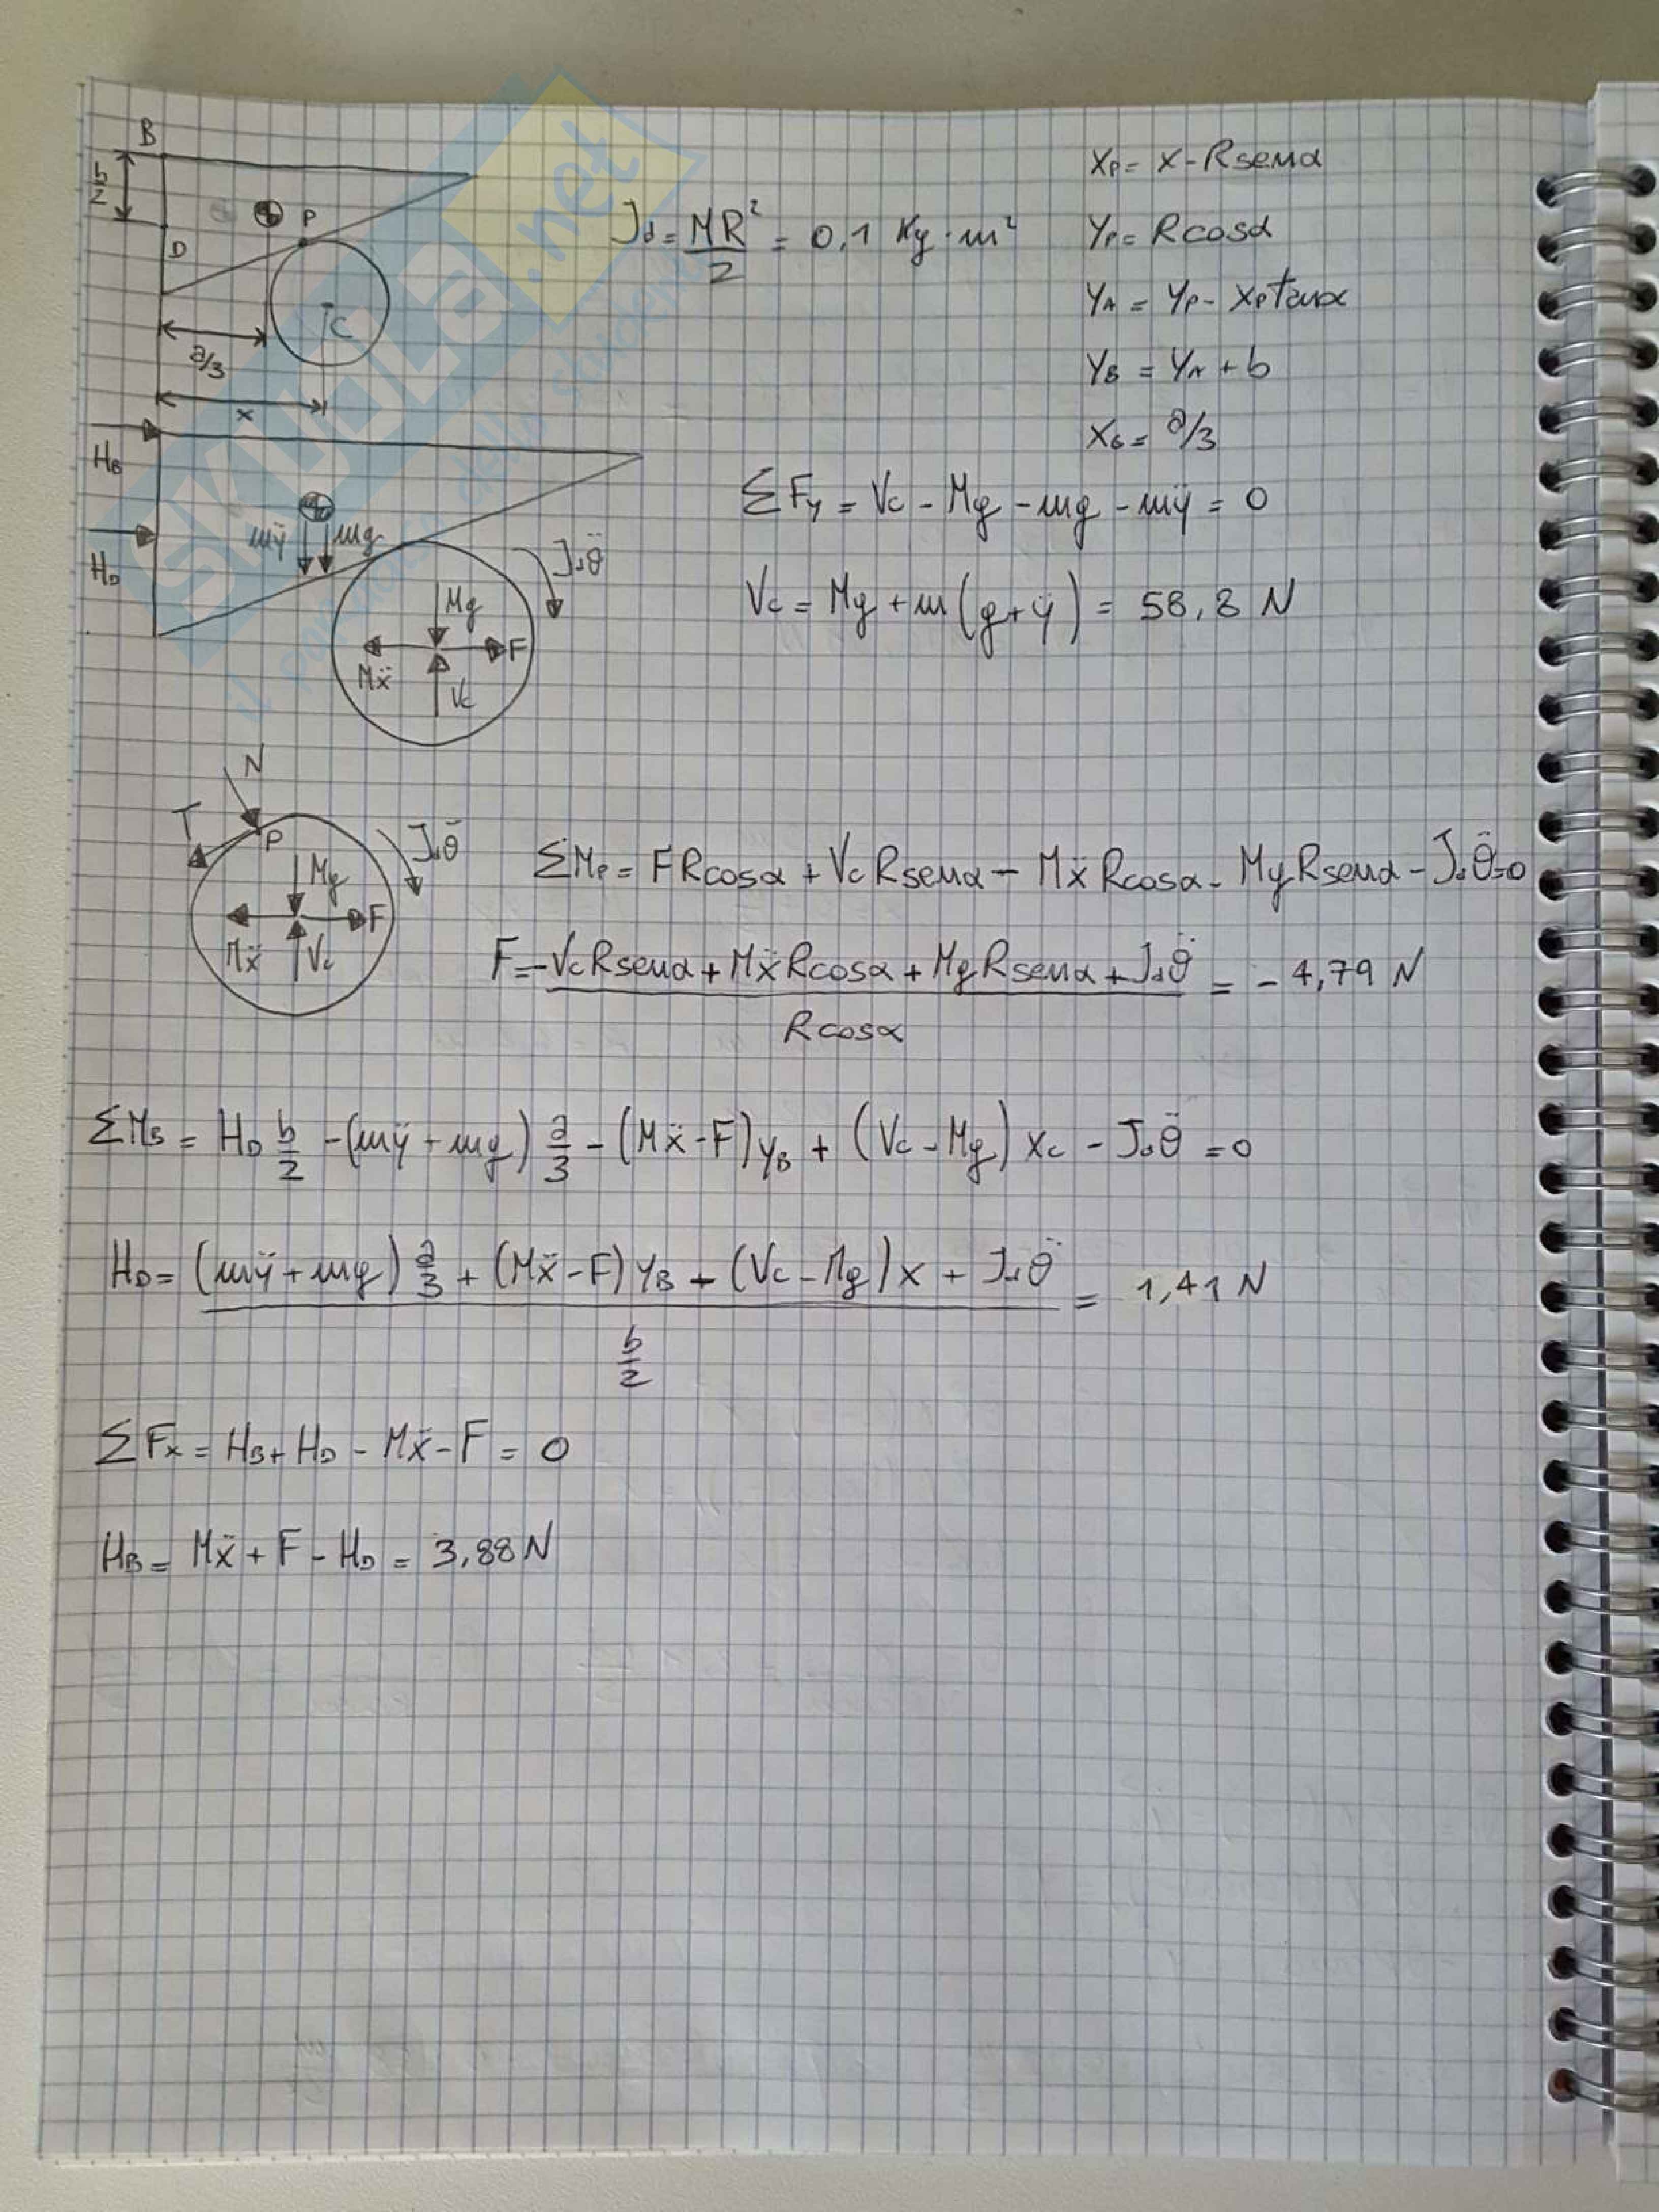 B
b/2
P
D
C
a/3
x
J_d = MR²/2 = 0,1 Kg·m²
x_P = x - R senα
y_P = R cosα
y_A = y_P - x_P tanα
y_B = y_A + b
x_G = a/3
H_B
H_D
mÿ
mg
J_d θ̈
Mg
F
Mẍ
V_C
ΣF_y = V_C - Mg - mg - mÿ = 0
V_C = Mg + m(g+ÿ) = 58,8 N
N
T
P
J_d θ̈
Mg
F
Mẍ
V_C
ΣM_P = F R cosα + V_C R senα - Mẍ R cosα - Mg R senα - J_d θ̈ = 0
F = (-V_C R senα + Mẍ R cosα + Mg R senα + J_d θ̈) / (R cosα) = -4,79 N
ΣM_B = H_D b/2 - (mÿ + mg) a/3 - (Mẍ - F) y_B + (V_C - Mg) x_C - J_d θ̈ = 0
H_D = ((mÿ + mg) a/3 + (Mẍ - F) y_B - (V_C - Mg) x + J_d θ̈) / (b/2) = 1,41 N
ΣF_x = H_B + H_D - Mẍ - F = 0
H_B = Mẍ + F - H_D = 3,88 N
SKUOLA.net
il paradiso dello studente